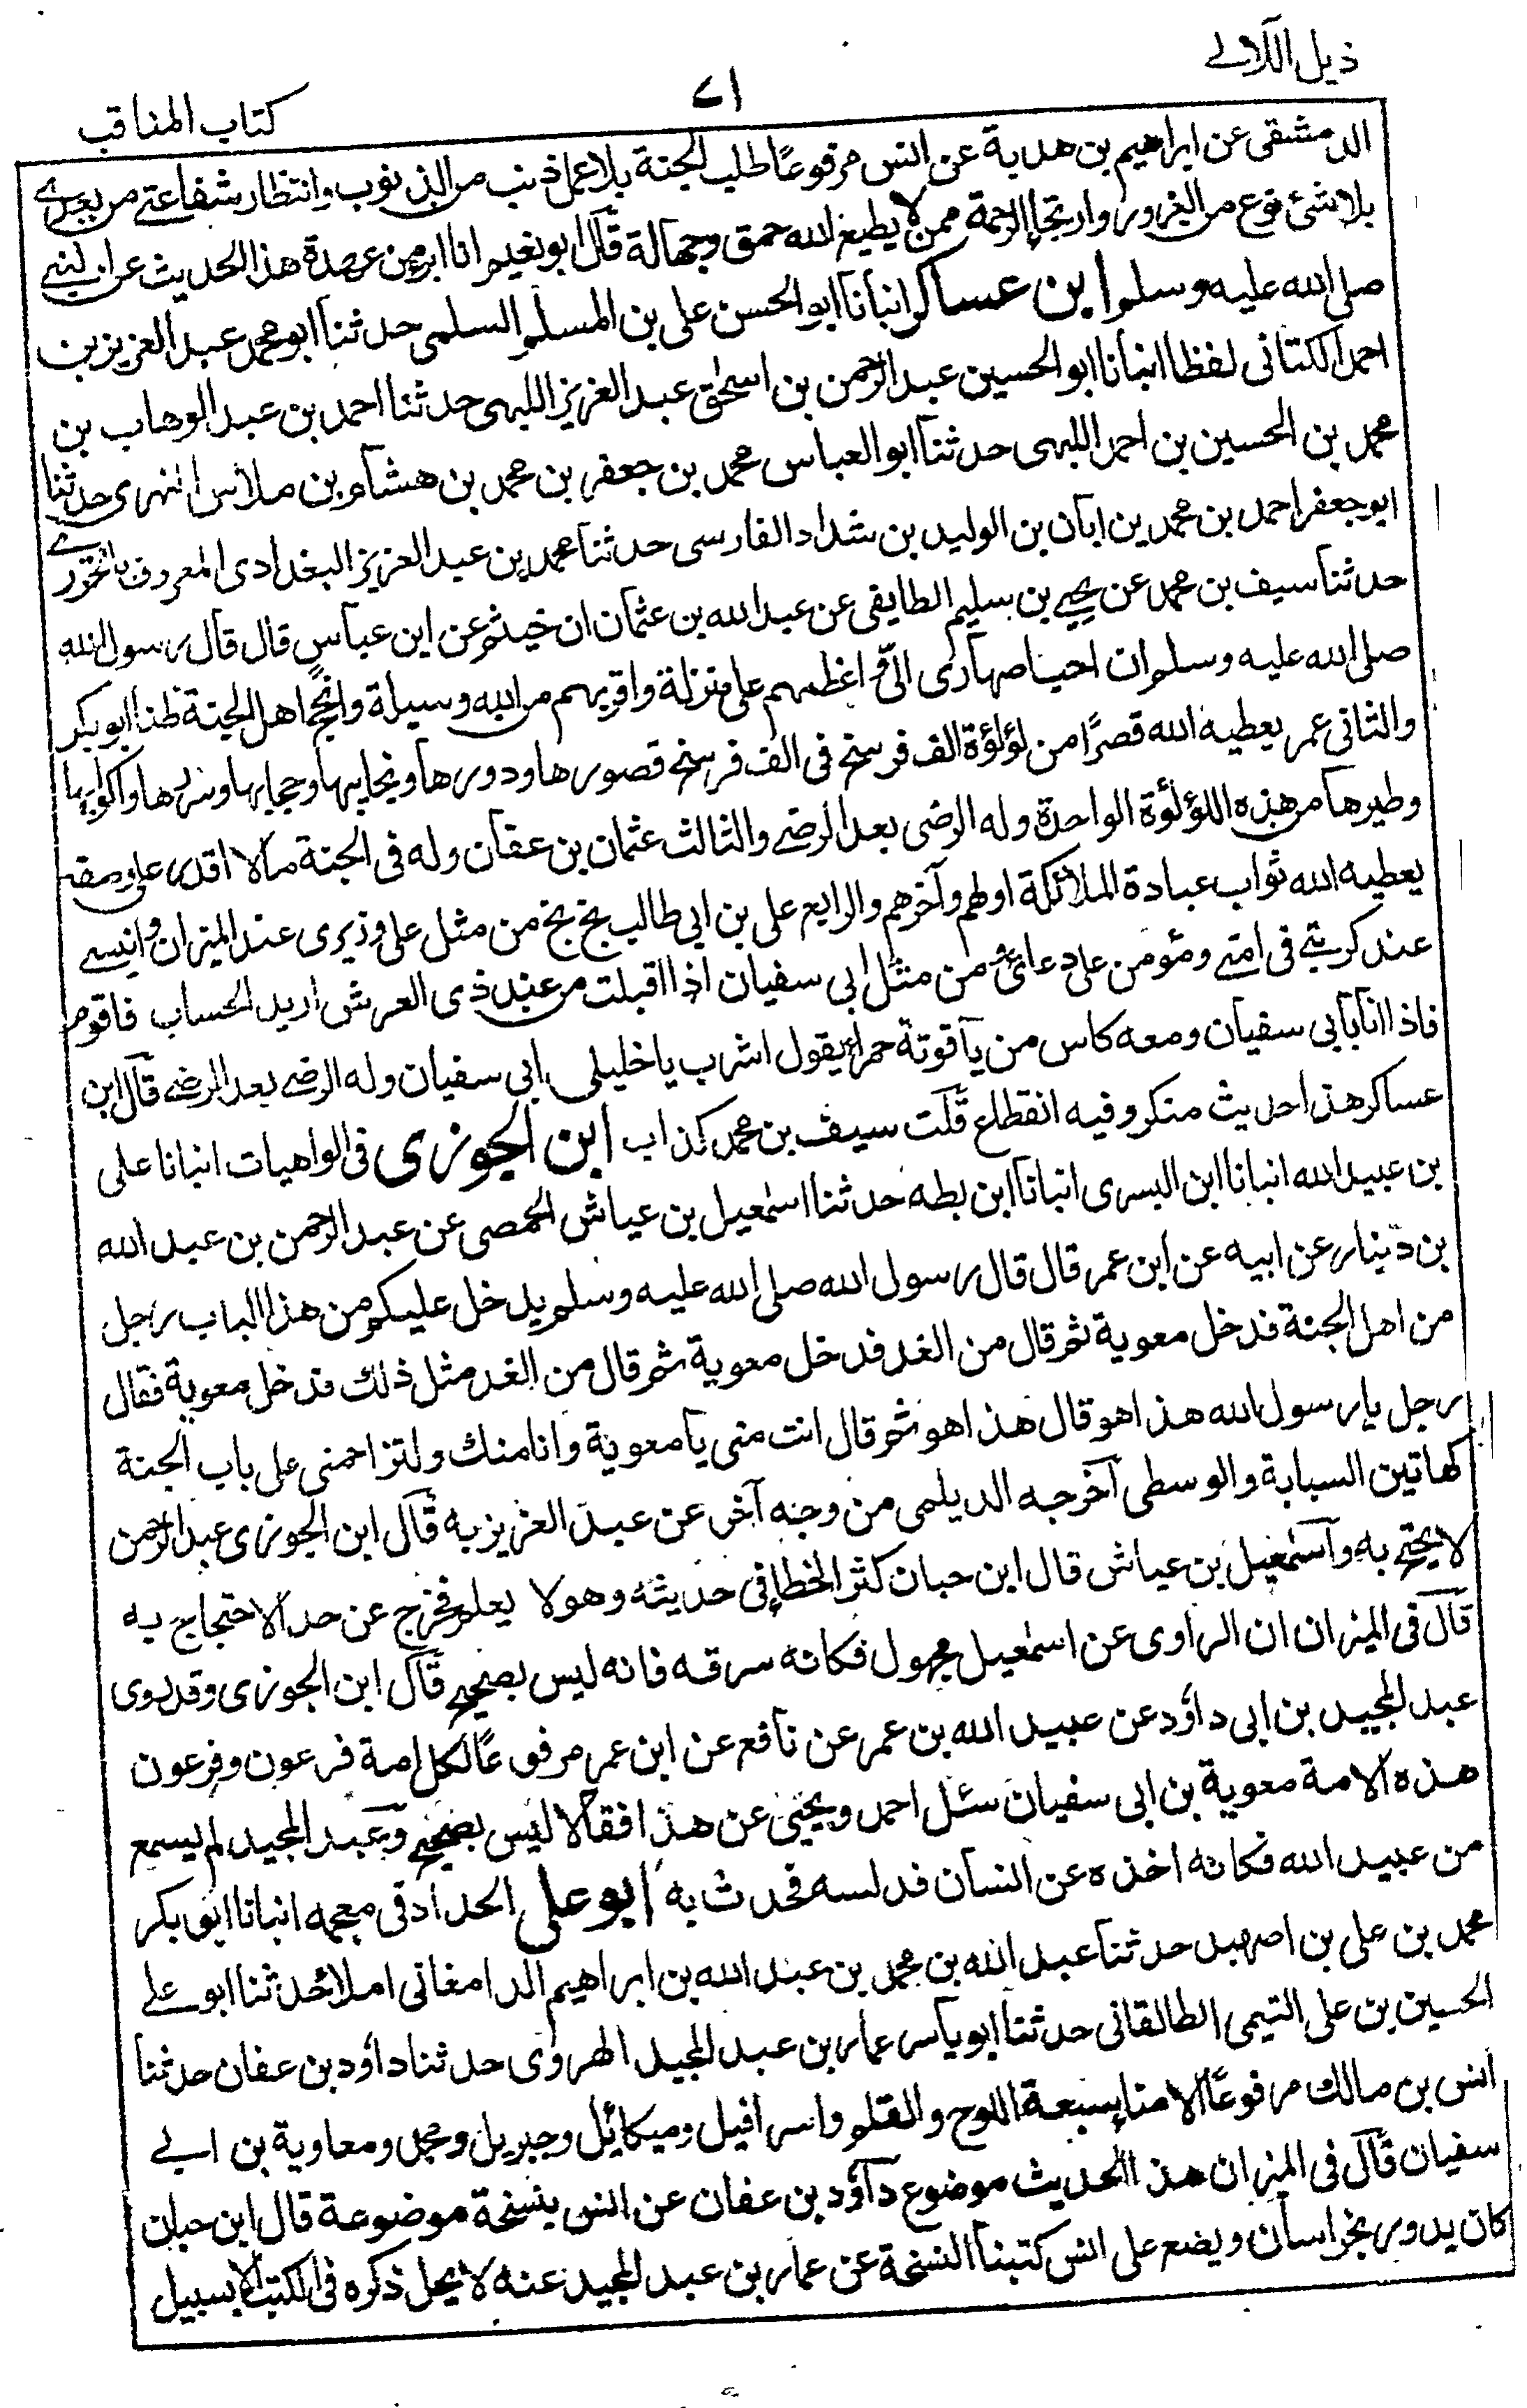 ذيل اللآلے
۷۱
كتاب المناقب
الدمشقى عن ابراهيم بن هدبة عن انس مرفوعًا طلب الجنة بلا عمل ذنب من الذنوب وانتظار شفاعتے من بعدے
بلا شئ نوع من الغرور وارتجاء الرحمة ممن لا يطيع الله حمق وجهالة قال ابو نعيم انا ابرء من عهدة هذا الحديث عن النبے
صلى الله عليه وسلم ابن عساكر انبأنا ابو الحسن على بن المسلم السلمى حدثنا ابو محمد عبد العزيز بن
احمد الكتانى لفظا انبأنا ابو الحسين عبد الرحمن بن اسحٰق عبد العزيز اللهبى حدثنا احمد بن عبد الوهاب بن
محمد بن الحسين بن احمد اللهبى حدثنا ابو العباس محمد بن جعفر بن محمد بن هشام بن ملاس النهرى حدثنا
ابو جعفر احمد بن محمد بن ابان بن الوليد بن شداد الفارسى حدثنا محمد بن عبد العزيز البغدادى المعروف
حدثنا سيف بن محمد عن يحيے بن سليم الطايفى عن عبد الله بن عثمان ان خيثم عن ابن عباس قال قال رسول الله
صلى الله عليه وسلم ان احب اصهارى الىّ واعظمهم على منزلة واقربهم من الله وسيلة وانجح اهل الجنة ابو بكر
والثانى عمر يعطيه الله قصرًا من لؤلؤة الف فرسخ فى الف فرسخ قصورها ودورها وحجابها وسررها واكوابها
وطيرها من هذه اللؤلؤة الواحدة وله الرضى بعد الرضے والثالث عثمان بن عفان وله فى الجنة ما لا اقدر على وصفه
يعطيه الله ثواب عبادة الملائكة اولهم وآخرهم والرابع على بن ابى طالب بخ بخ من مثل على وزيرى عند الميزان وانيسے
عند كربتے فى امتے ومؤمن على دعائى من مثل ابى سفيان اذا اقبلت من عند ذى العرش اريد الحساب فاقوم
فاذا انا بابى سفيان ومعه كاس من ياقوتة حمراء يقول اشرب يا خليلى ابى سفيان وله الرضے بعد الرضے قال ابن
عساكر هذا حديث منكر وفيه انقطاع قلت سيف بن محمد كذاب ابن الجوزى فى الواهيات انبانا على
بن عبيد الله انبانا ابن البسرى انبانا ابن بطه حدثنا اسمٰعيل بن عياش الحمصى عن عبد الرحمن بن عبد الله
بن دينار عن ابيه عن ابن عمر قال قال رسول الله صلى الله عليه وسلم يدخل عليكم من هذا الباب رجل
من اهل الجنة فدخل معوية ثم قال من الغد فدخل معوية ثم قال من الغد مثل ذلك فدخل معوية فقال
رجل يا رسول الله هذا هو قال هذا هو ثم قال انت منى يا معوية وانا منك ولتزاحمنى على باب الجنة
كهاتين السبابة والوسطى آخرجه الديلمى من وجه آخر عن عبد العزيز به قال ابن الجوزى عبد الرحمن
لا يحتج به واسمٰعيل بن عياش قال ابن حبان كثر الخطا فى حديثه وهو لا يعلم فخرج عن حد الاحتجاج به
قال فى الميزان ان الراوى عن اسمٰعيل مجهول فكانه سرقه فانه ليس بصحيح قال ابن الجوزى وقد روى
عبد المجيد بن ابى داؤد عن عبيد الله بن عمر عن نافع عن ابن عمر مرفوعًا لكل امة فرعون وفرعون
هذه الامة معوية بن ابى سفيان سئل احمد ويحيٰى عن هذا فقالا ليس بصحيح وعبد المجيد لم يسمع
من عبيد الله فكانه اخذه عن انسان فدلسه فحدث به ابو على الحداد فى معجمه انبانا ابو بكر
محمد بن على بن اصهبد حدثنا عبد الله بن محمد بن عبد الله بن ابراهيم الدامغانى املائا حدثنا ابو علے
الحسين بن على التيمى الطالقانى حدثنا ابو ياسر عمار بن عبد المجيد الهروى حدثنا داؤد بن عفان حدثنا
أنس بن مالك مرفوعًا الامناء سبعة اللوح والقلم واسرافيل وميكائيل وجبريل ومحمد ومعاوية بن ابے
سفيان قال فى الميزان هذا الحديث موضوع داؤد بن عفان عن انس بنسخة موضوعة قال ابن حبان
كان يدور بخراسان ويضع على انس كتبنا النسخة عن عمار بن عبد المجيد عنه لا يحل ذكره فى الكتب الا بسبيل